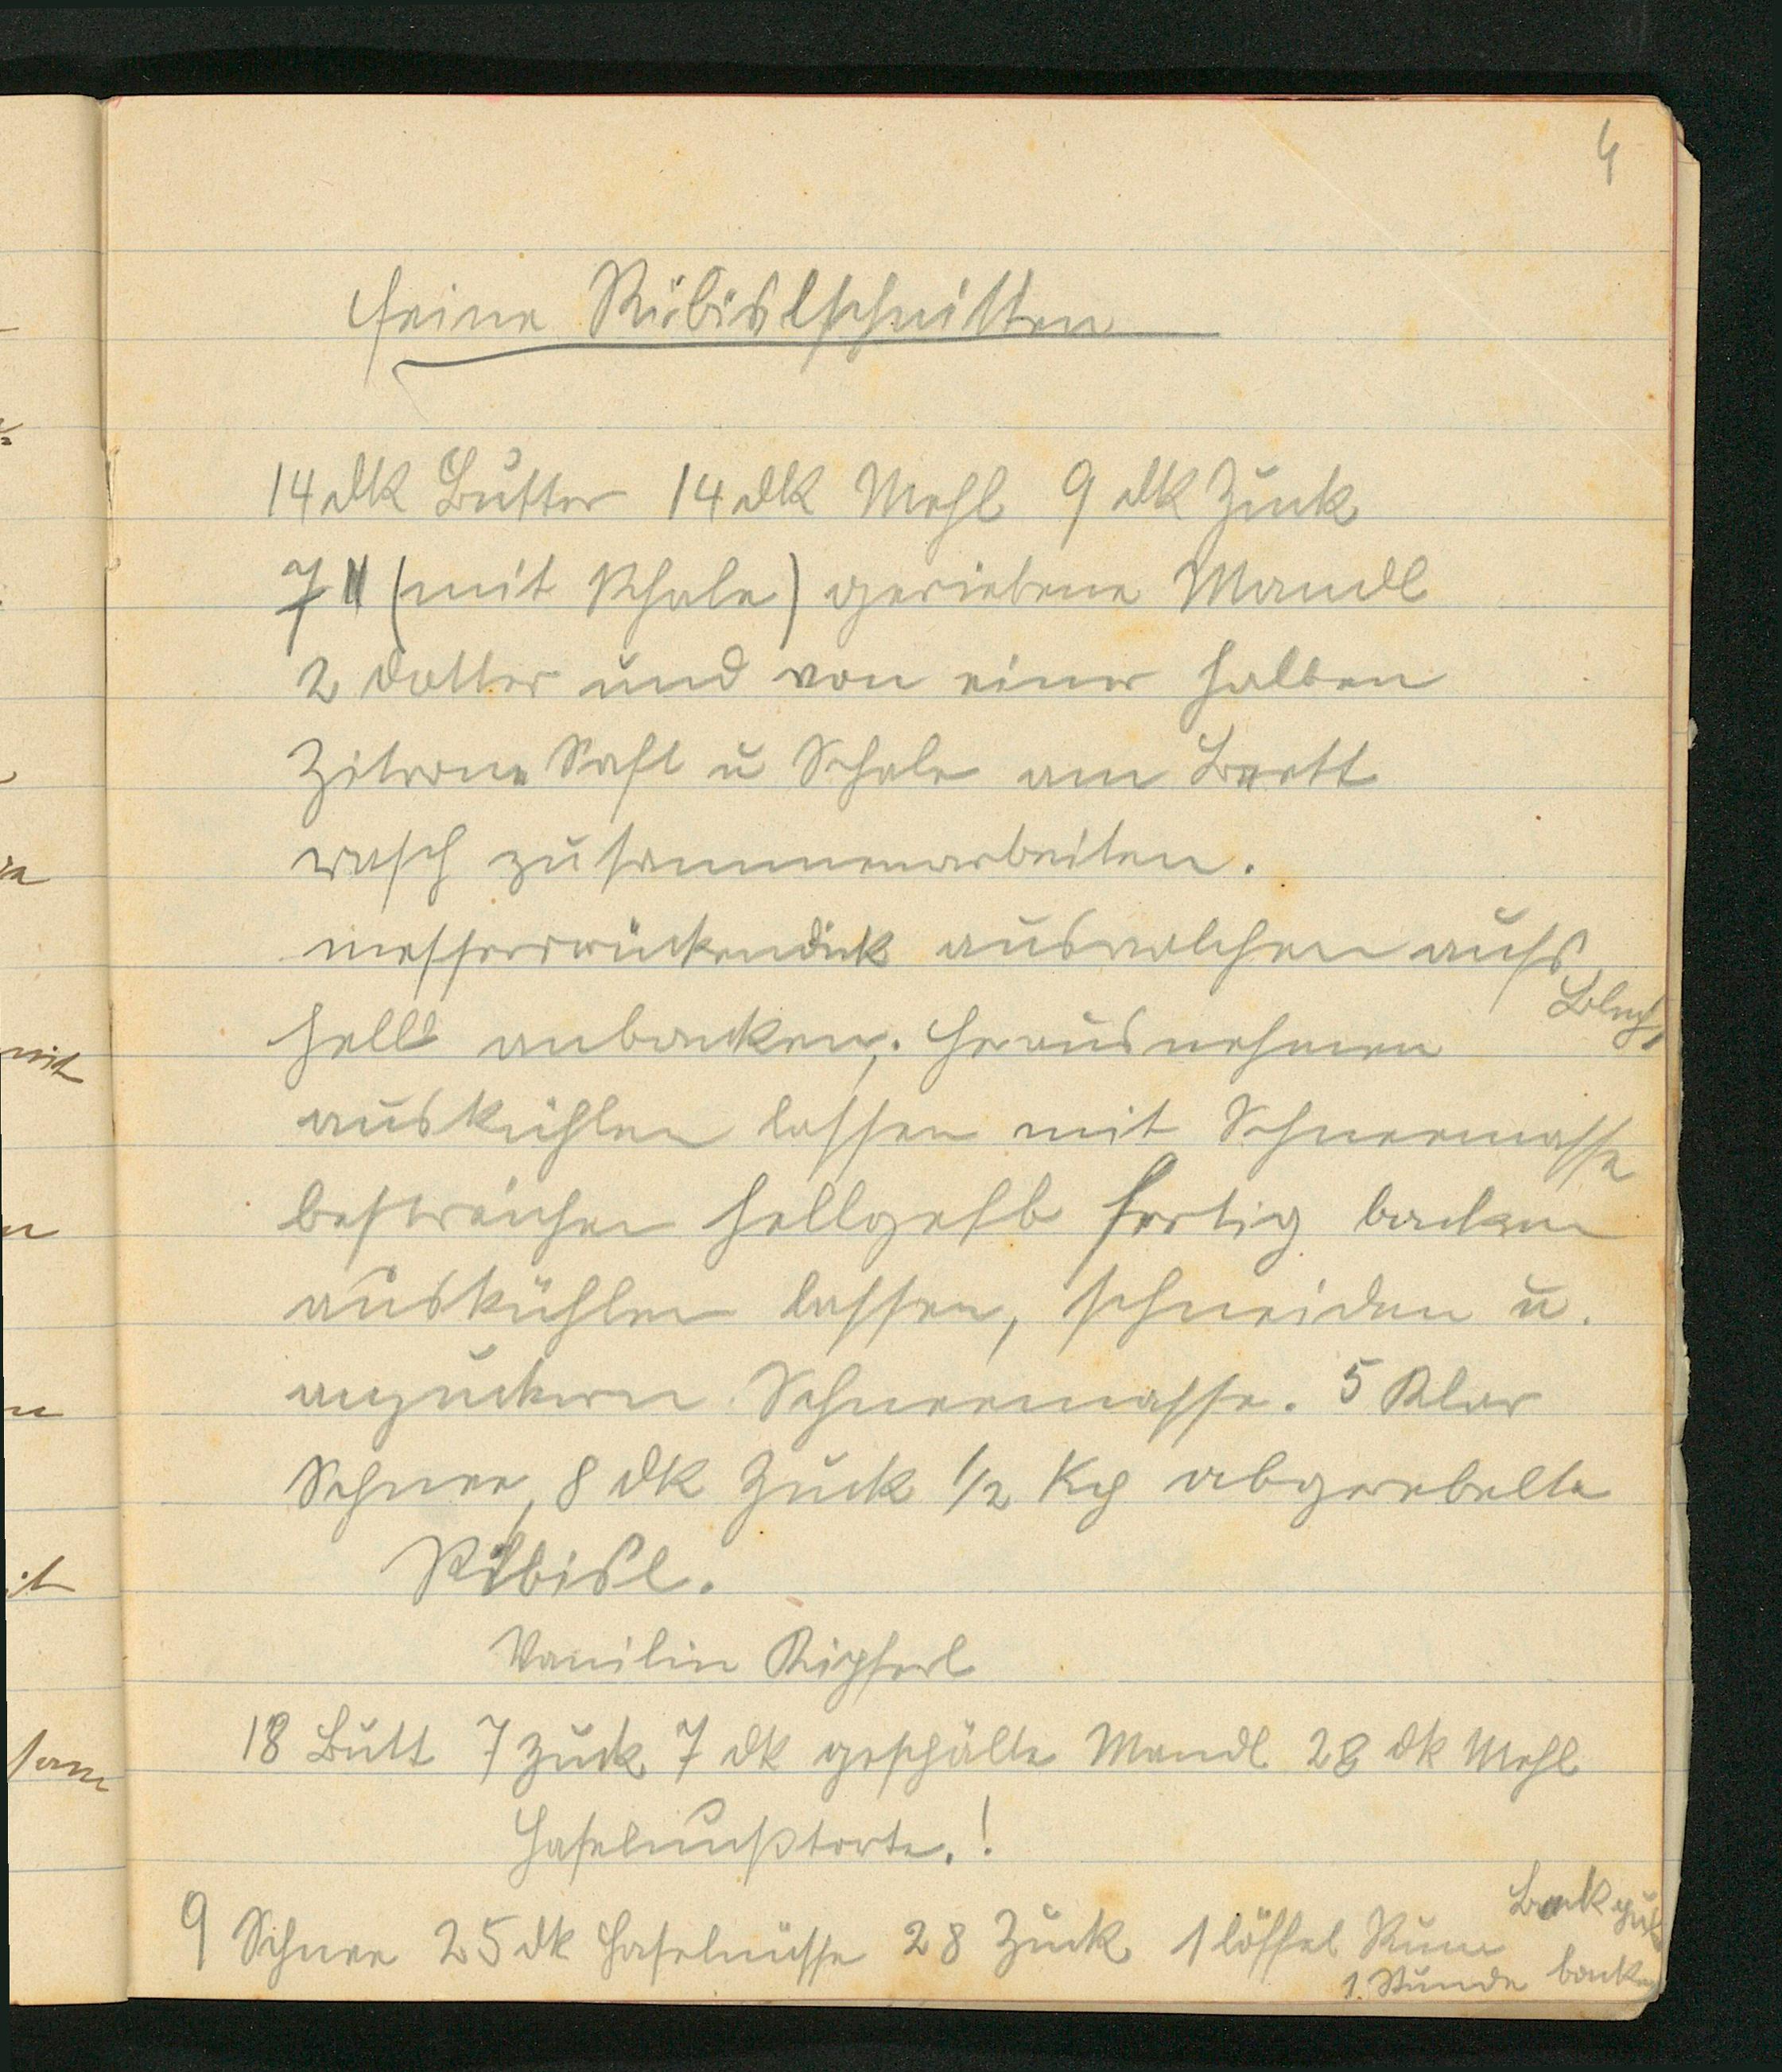 4
feine Ribislschnitten
14 dk Butter 14 dk Mehl 9 dk Zuck
7 " (mit Schale) geriebene Mandl
2 Dotter und von einer halben
Zitrone Saft u Schale am Brett
rasch zusammenarbeiten.
messerrückendick auswalchen aufs
Blech,
hell anbacken. Herausnehmen
auskühlen lassen mit Schneemasse
bestreichen hellgelb fertig backen
auskühlen lassen, schneiden u.
anzuckern Schneemasse. 5 Klar
Schnee, 8 dk Zuck 1/2 Kg abgerebelte
Ribisl.
Vanilin Kipferl
18 Butt 7 Zuck 7 dk geschälte Mandl 28 dk Mehl
Haselnußtorte.!
9 Schnee 25 dk Haselnüsse 28 Zuck 1 löffel Rum
1. Stunde backen